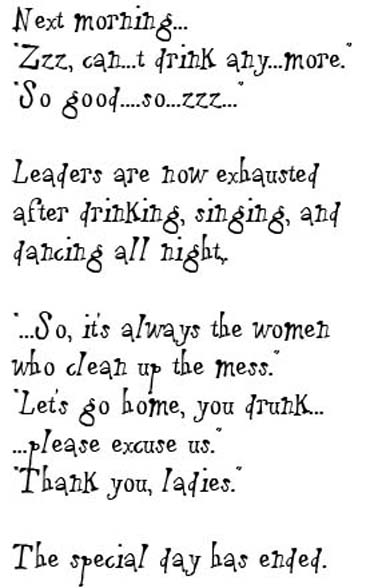 Next morning...
"Zzz, can...t drink any...more."
"So good....so...zzz..."
Leaders are now exhausted
after drinking, singing, and
dancing all night.
"...So, it's always the women
who clean up the mess."
"Let's go home, you drunk...
...please excuse us."
"Thank you, ladies."
The special day has ended.